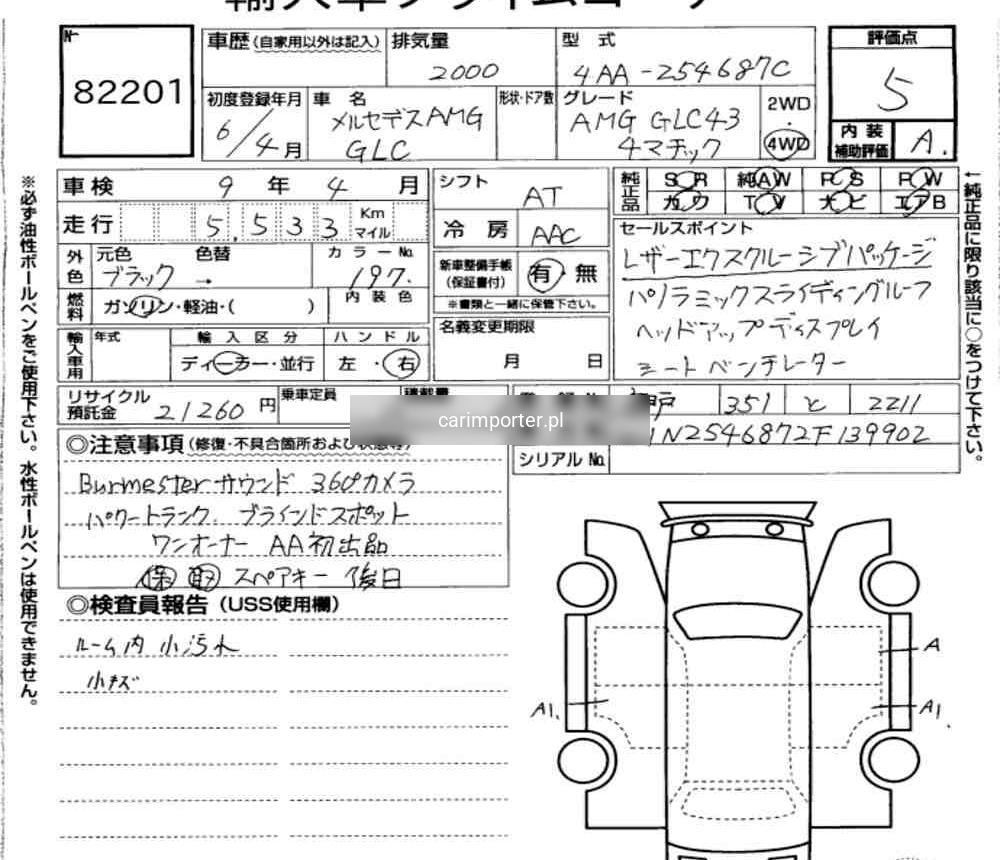 No.
82201
車歴(自家用以外は記入)
排気量
2000
型 式
4AA-254687C
評価点
5
内装
補助評価
A.
初度登録年月
6/4月
車 名
メルセデスAMG
GLC
形状・ドア数
グレード
AMG GLC43
4マチック
2WD
4WD
※必ず油性ボールペンをご使用下さい。水性ボールペンは使用できません。
車検 9年 4月
走行 5,533 Km
マイル
外色
元色
ブラック →
色替
カラーNo.
197.
燃料
ガソリン・軽油・( )
内装色
輸入車用
年式
輸入区分
ディーラー・並行
ハンドル
左・右
シフト
AT
冷 房
AAC
新車整備手帳
(保証書付)
有・無
※書類と一緒に保管下さい。
名義変更期限
月 日
純正品
S R
純AW
P S
P W
カ ワ
T V
ナ ビ
エアB
セールスポイント
レザーエクスクルーシブパッケージ
パノラミックスライディングルーフ
ヘッドアップディスプレイ
シートベンチレーター
←純正品に限り該当に○をつけて下さい。
リサイクル
預託金
21260円
乗車定員
351 と 2211
1N2546872F139902
シリアルNo.
carimporter.pl
◎注意事項(修復・不具合箇所および状態等)
Burmesterサウンド 360°カメラ
パワートランク. ブラインドスポット
ワンオーナー AA初出品
保 取 スペアキー 後日
◎検査員報告(USS使用欄)
ルーム内 小汚れ
小キズ
A
A1.
A1.